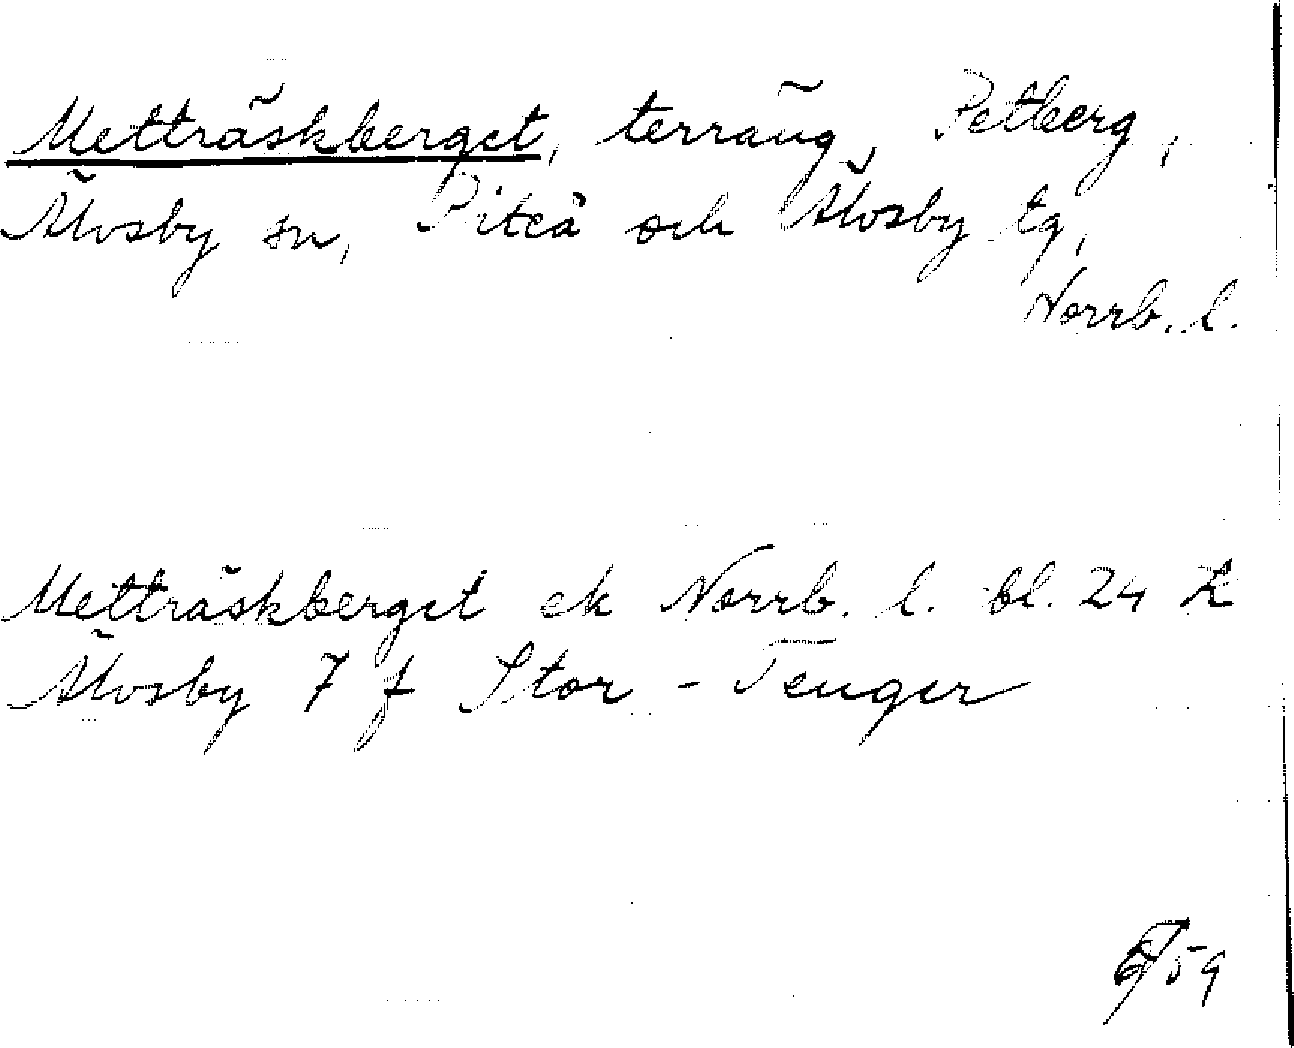 Metträskberget, terräng, Petberg,
Älvsby sn, Piteå och Älvsby tg,
Norrb. l.
Metträskberget ek Norrb. l. bl. 24 L
Älvsby 7 f Stor-Tenger
59